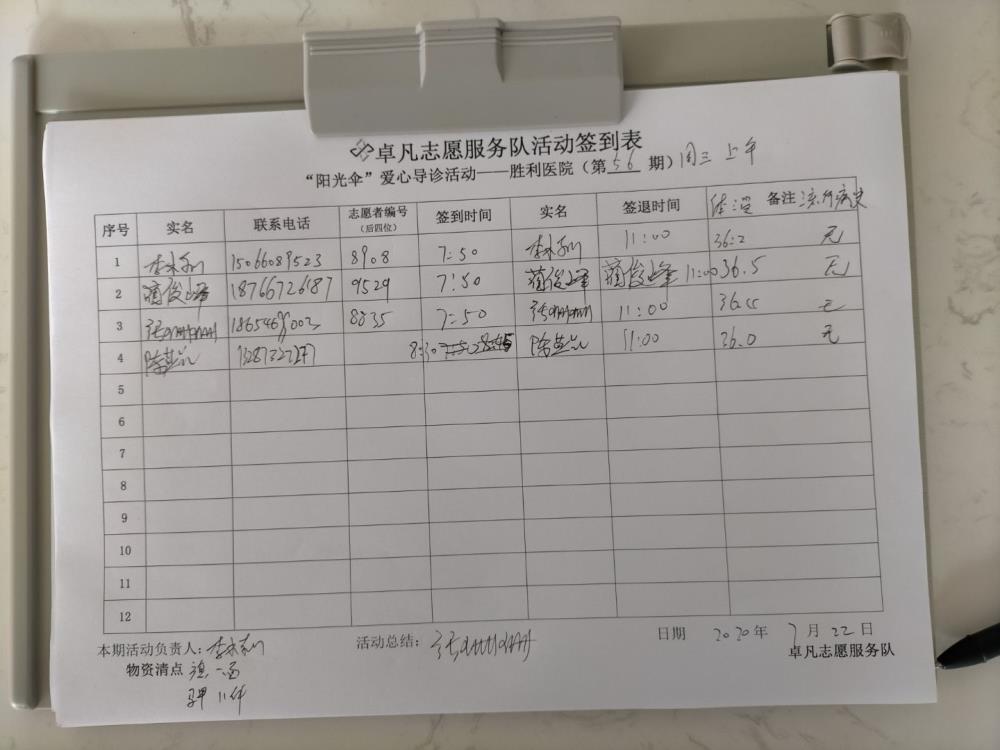 卓凡志愿服务队活动签到表
“阳光伞”爱心导诊活动——胜利医院（第56期）周三 上午
序号 实名 联系电话 志愿者编号（后四位） 签到时间 实名 签退时间 体温 备注 流行病史
1 15066089523 8908 7:50 11:00 36.2 无
2 蔺俊峰 18766726187 9529 7:50 蔺俊峰 蔺俊峰 11:00 36.5 无
3 张姗姗 8835 7:50 张姗姗 11:00 无
4 8:30 11:00 36.0 无
5
6
7
8
9
10
11
12
本期活动负责人： 活动总结：张姗姗 日期 2020年 7月22日
物资清点 卓凡志愿服务队
马甲 11件